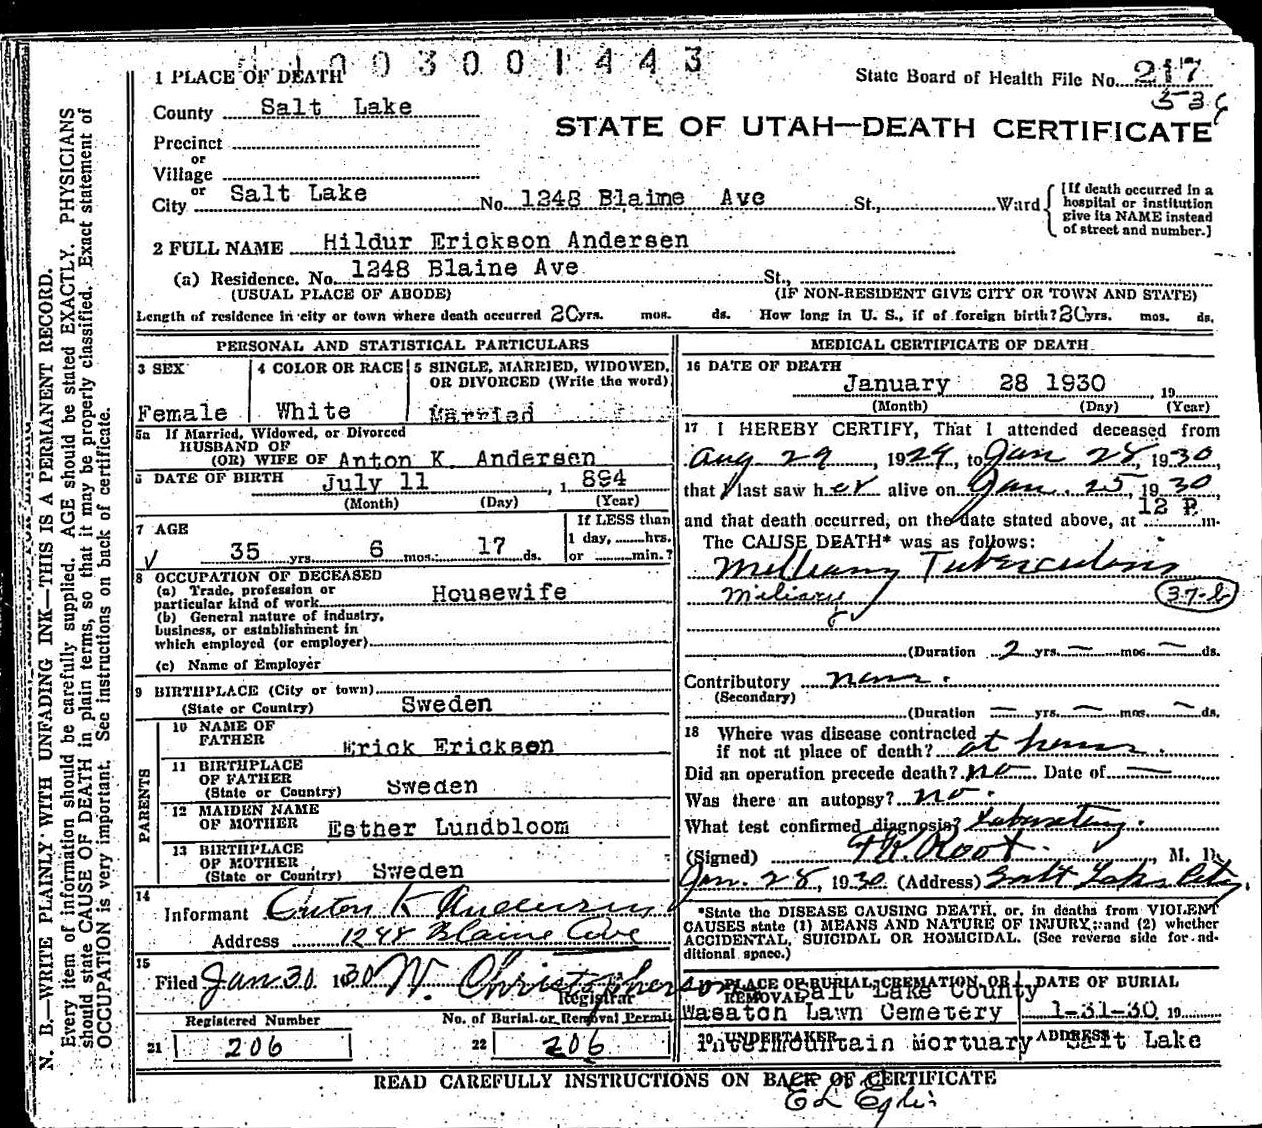 1003001443
1 PLACE OF DEATH
State Board of Health File No. 217
536
County Salt Lake
STATE OF UTAH—DEATH CERTIFICATE
Precinct
or
Village
or
City Salt Lake No. 1248 Blaine Ave St., Ward
[If death occurred in a hospital or institution give its NAME instead of street and number.]
2 FULL NAME Hildur Erickson Andersen
(a) Residence. No. 1248 Blaine Ave St.,
(USUAL PLACE OF ABODE) (IF NON-RESIDENT GIVE CITY OR TOWN AND STATE)
Length of residence in city or town where death occurred 20 yrs. mos. ds. How long in U. S., if of foreign birth? 20 yrs. mos. ds.
PERSONAL AND STATISTICAL PARTICULARS
3 SEX
Female
4 COLOR OR RACE
White
5 SINGLE, MARRIED, WIDOWED, OR DIVORCED (Write the word)
Married
5a If Married, Widowed, or Divorced
HUSBAND OF
(OR) WIFE OF Anton K. Andersen
6 DATE OF BIRTH July 11, 1894
(Month) (Day) (Year)
7 AGE
35 yrs. 6 mos. 17 ds.
If LESS than
1 day, hrs.
or min.?
8 OCCUPATION OF DECEASED
(a) Trade, profession or
particular kind of work Housewife
(b) General nature of industry,
business, or establishment in
which employed (or employer)
(c) Name of Employer
9 BIRTHPLACE (City or town)
(State or Country) Sweden
PARENTS
10 NAME OF
FATHER Erick Erickson
11 BIRTHPLACE
OF FATHER
(State or Country) Sweden
12 MAIDEN NAME
OF MOTHER Esther Lundbloom
13 BIRTHPLACE
OF MOTHER
(State or Country) Sweden
14
Informant Anton K Andersen
Address 1248 Blaine Ave
15
Filed Jan 30 1930 W. Christopherson
Registrar
Registered Number
21 206
No. of Burial or Removal Permit
22 206
MEDICAL CERTIFICATE OF DEATH
16 DATE OF DEATH
January 28 1930, 19
(Month) (Day) (Year)
17 I HEREBY CERTIFY, That I attended deceased from
Aug 29, 1929, to Jan 28, 1930,
that I last saw her alive on Jan. 25, 1930,
and that death occurred, on the date stated above, at 12 P. m.
The CAUSE DEATH* was as follows:
Milleary Tuberculosis
Miliary 37-b
(Duration 2 yrs. — mos. — ds.
Contributory none.
(Secondary)
(Duration — yrs. — mos. — ds.
18 Where was disease contracted
if not at place of death? at home.
Did an operation precede death? no Date of —
Was there an autopsy? no.
What test confirmed diagnosis? Laboratory.
(Signed) F.K. Root, M. D.
Jan. 28, 1930 (Address) Salt Lake City,
*State the DISEASE CAUSING DEATH, or, in deaths from VIOLENT
CAUSES state (1) MEANS AND NATURE OF INJURY; and (2) whether
ACCIDENTAL, SUICIDAL OR HOMICIDAL. (See reverse side for ad-
ditional space.)
PLACE OF BURIAL, CREMATION, OR
REMOVAL Salt Lake County
Wasatch Lawn Cemetery
DATE OF BURIAL
1-31-30 19
20 UNDERTAKER
Intermountain Mortuary
ADDRESS
Salt Lake
READ CAREFULLY INSTRUCTIONS ON BACK OF CERTIFICATE
N. B.—WRITE PLAINLY WITH UNFADING INK—THIS IS A PERMANENT RECORD.
Every item of information should be carefully supplied. AGE should be stated EXACTLY. PHYSICIANS
should state CAUSE OF DEATH in plain terms, so that it may be properly classified. Exact statement of
OCCUPATION is very important. See instructions on back of certificate.